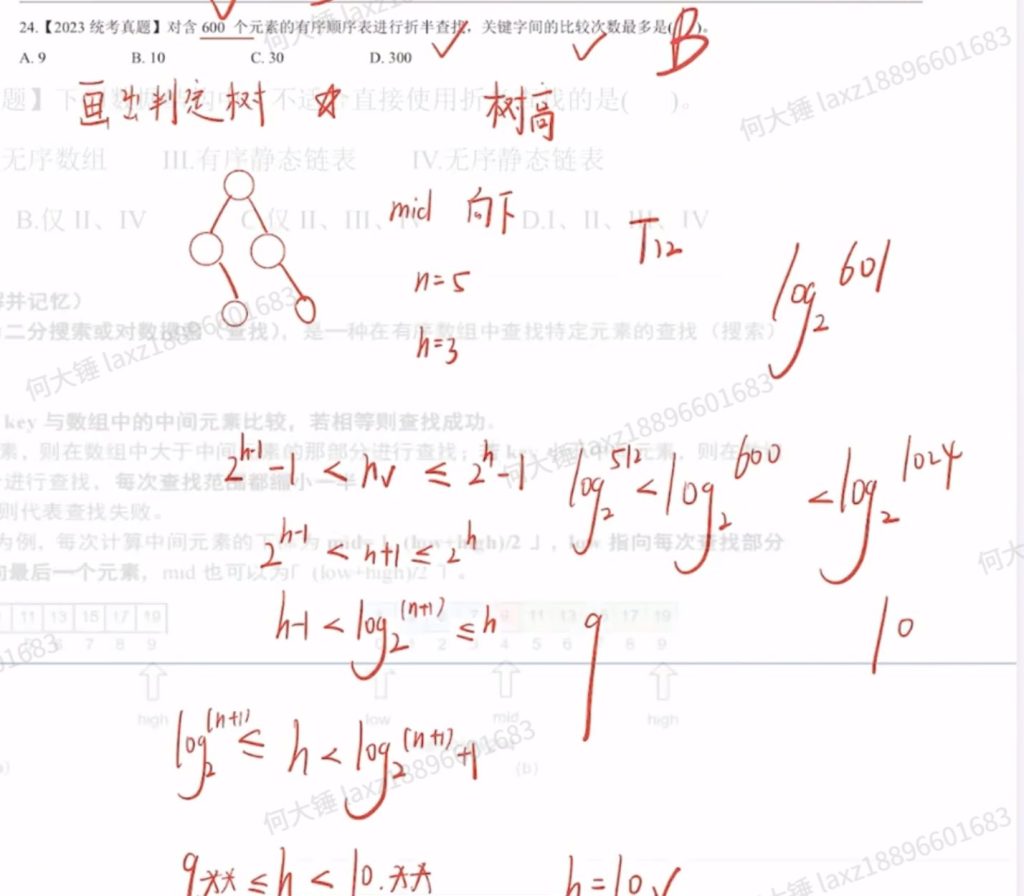 24.【2023 统考真题】对含 600 个元素的有序顺序表进行折半查找，关键字间的比较次数最多是( B )。
A. 9 B. 10 C. 30 D. 300
画出判定树 ☆ 树高
不适合直接使用折半查找的是( )。
无序数组 III.有序静态链表 IV.无序静态链表
B.仅 II、IV C.仅 II、III、IV D.I、II、III、IV
mid 向下
T12
n=5
log₂601
h=3
并记忆）
二分搜索或对数搜索（查找），是一种在有序数组中查找特定元素的查找（搜索）
key 与数组中的中间元素比较，若相等则查找成功。
素，则在数组中大于中间元素的那部分进行查找；
进行查找，每次查找范围都缩小一半
则代表查找失败。
为例，每次计算中间元素的下标为 mid=⌊(low+high)/2⌋，low 指向每次查找部分
最后一个元素，mid 也可以为⌈(low+high)/2⌉。
2^(h-1)-1 < n ≤ 2^h-1
log₂512 < log₂600 < log₂1024
2^(h-1) < n+1 ≤ 2^h
h-1 < log₂(n+1) ≤ h
9 10
11 13 15 17 19
6 7 8 9
9 11 13 17 19
2 3 4 5 6 8 9
high low mid high
(b)
log₂(n+1) ≤ h < log₂(n+1)+1
9.** ≤ h < 10.** h=10 ✓
何大锤 laxz18896601683
何大锤 laxz18896601683
何大锤 laxz18896601683
何大锤 laxz18896601683
何大锤 laxz18896601683